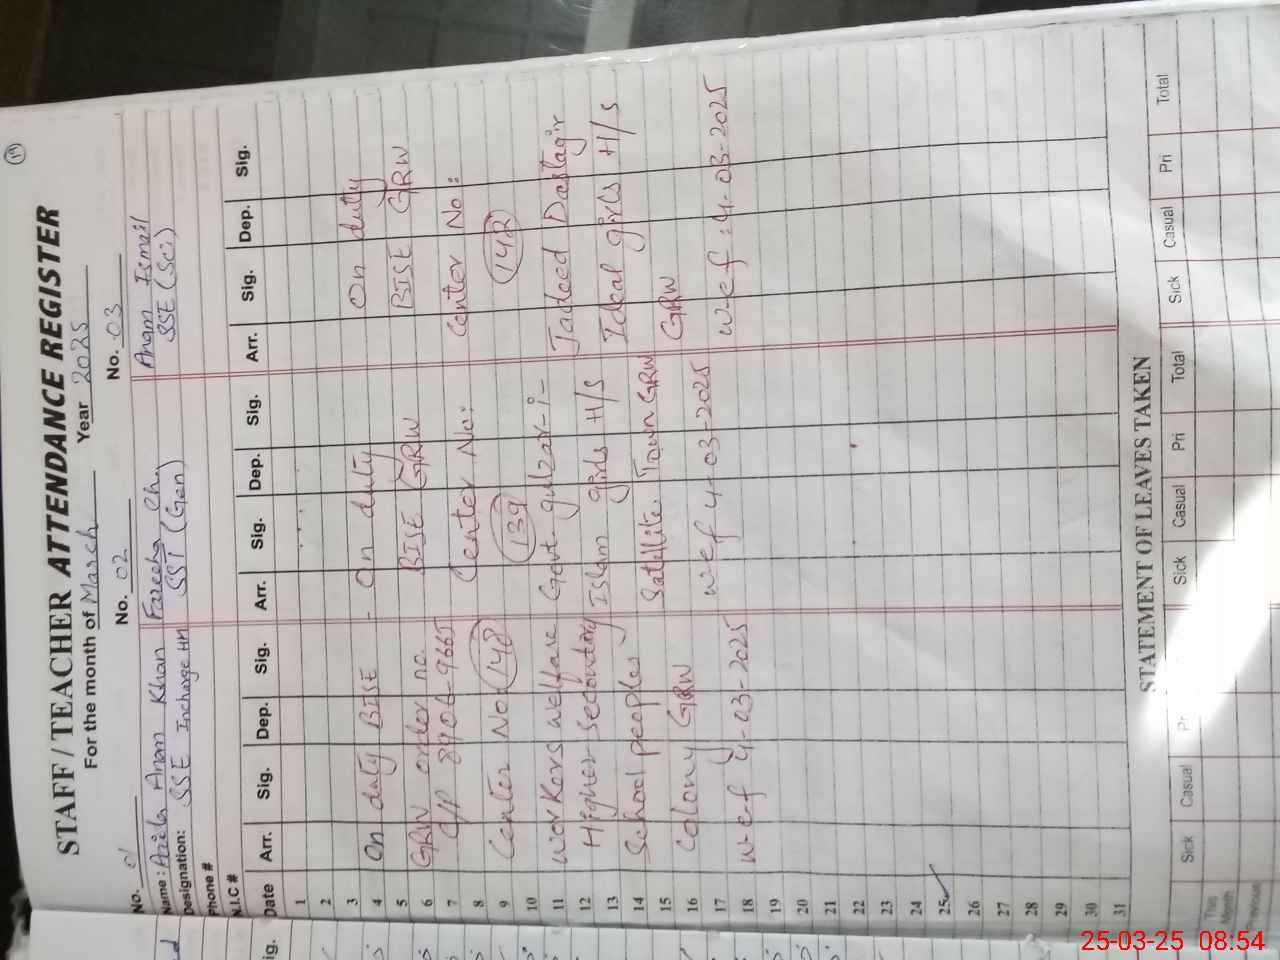 19
STAFF / TEACHER ATTENDANCE REGISTER
For the month of March Year 2025
No. 01 No. 02 No. 03
Name : Anila Anam Khan Fareeha Ch. Anam Ismail
Designation: SSE Incharge HM SST (Gen) SSE (Sci)
Phone #
N.I.C #
Date Arr. Sig. Dep. Sig. Arr. Sig. Dep. Sig. Arr. Sig. Dep. Sig.
1
2
3
4 On duty BISE - On duty On duty
5
6 GRW order no. BISE GRW BISE GRW
7 C/P 8906-9665
8 Center No: Center No:
9 Center No. 148 139 142
10
11 Workers welfare Govt gulzar-i- Jadeed Dastagir
12 Higher Secondary Islam girls H/S Ideal girls H/S
13
14 School peoples Satellite Town GRW GRW
15
16 Colony GRW
17 w-e-f 4-03-2025 w-e-f : 4-03-2025
18 w-e-f 4-03-2025
19
20
21
22
23
24
25
26
27
28
29
30
31
STATEMENT OF LEAVES TAKEN
Sick Casual Pri Sick Casual Pri Total Sick Casual Pri Total
This Month
Previous
25-03-25 08:54